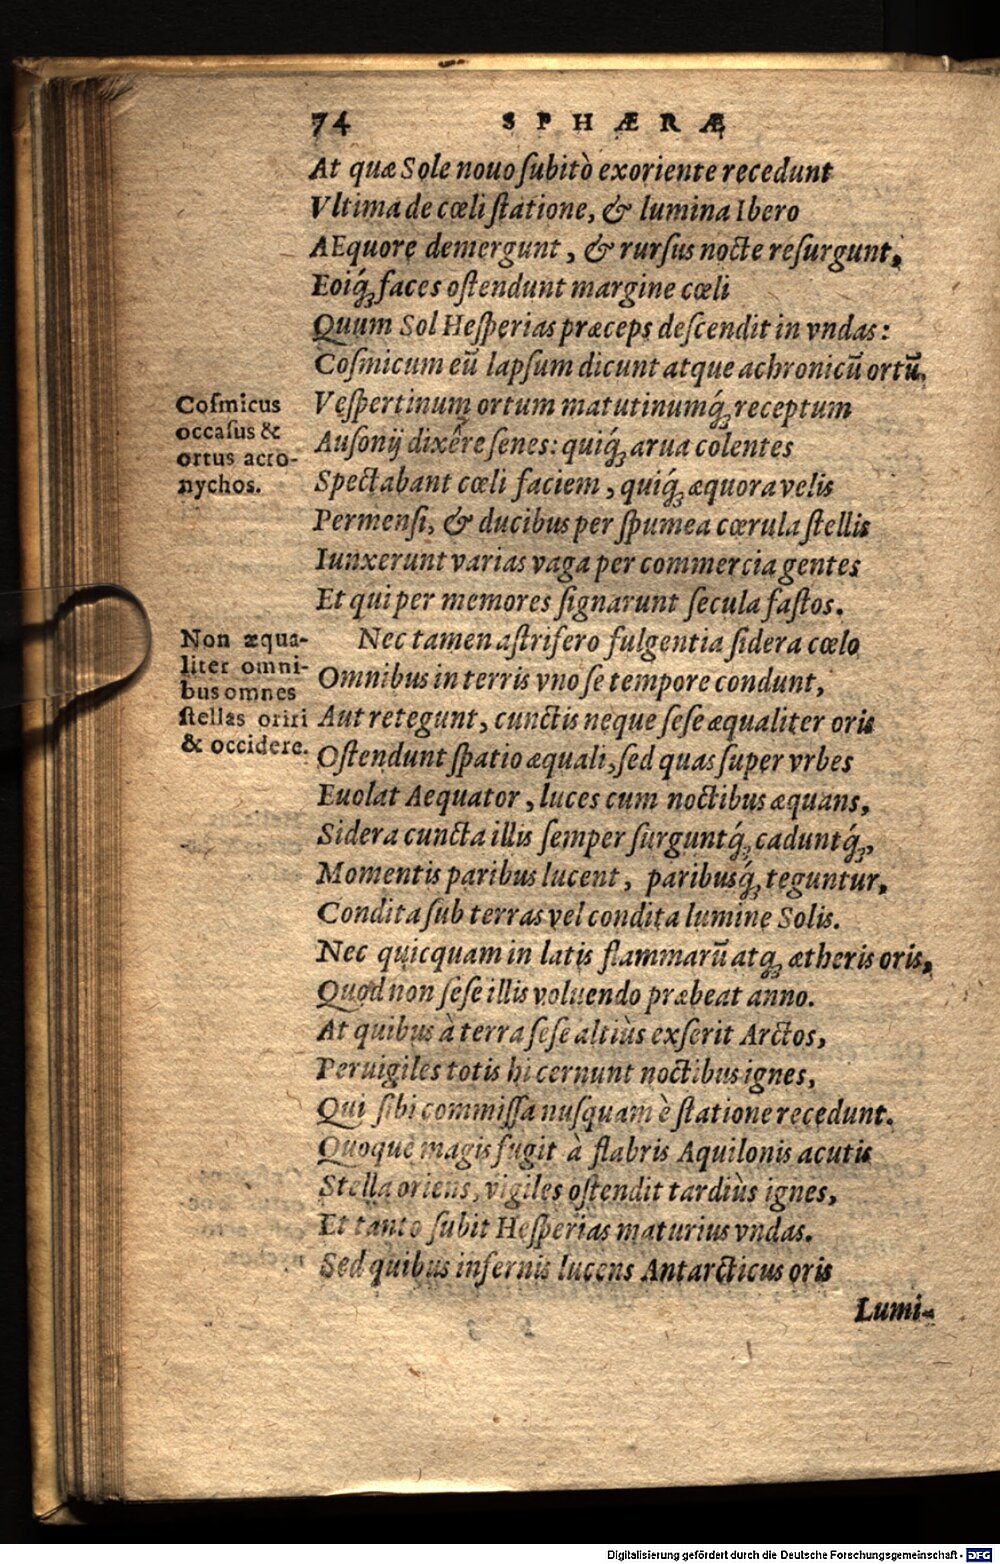 74 SPHÆRÆ
At quæ Sole nouo ſubitò exoriente recedunt
Vltima de cœli ſtatione, & lumina Ibero
AEquore demergunt, & rurſus nocte reſurgunt,
Eoiq́ꝫ faces oſtendunt margine cœli
Quum Sol Heſperias præceps deſcendit in vndas:
Coſmicum eū lapſum dicunt atque achronicū ortū.
Coſmicus
occaſus &
ortus acro-
nychos.
Veſpertinum ortum matutinumq́ꝫ receptum
Auſonij dixêre ſenes: quiq́ꝫ arua colentes
Spectabant cœli faciem, quiq́ꝫ æquora velis
Permenſi, & ducibus per ſpumea cœrula ſtellis
Iunxerunt varias vaga per commercia gentes
Et qui per memores ſignarunt ſecula faſtos.
Non æqua-
liter omni-
bus omnes
ſtellas oriri
& occidere.
Nec tamen aſtrifero fulgentia ſidera cœlo
Omnibus in terris vno ſe tempore condunt,
Aut retegunt, cunctis neque ſeſe æqualiter oris
Oſtendunt ſpatio æquali, ſed quas ſuper vrbes
Euolat Aequator, luces cum noctibus æquans,
Sidera cuncta illis ſemper ſurguntq́ꝫ, caduntq́ꝫ,
Momentis paribus lucent, paribusq́ꝫ teguntur,
Condita ſub terras vel condita lumine Solis.
Nec quicquam in latis flammarū atqꝫ ætheris oris,
Quod non ſeſe illis voluendo præbeat anno.
At quibus à terra ſeſe altiùs exſerit Arctos,
Peruigiles totis hi cernunt noctibus ignes,
Qui ſibi commiſſa nuſquam è ſtatione recedunt.
Quoque magis fugit à flabris Aquilonis acutis
Stella oriens, vigiles oſtendit tardiùs ignes,
Et tanto ſubit Heſperias maturius vndas.
Sed quibus infernis lucens Antarcticus oris
Lumi-
Digitalisierung gefördert durch die Deutsche Forschungsgemeinschaft - DFG